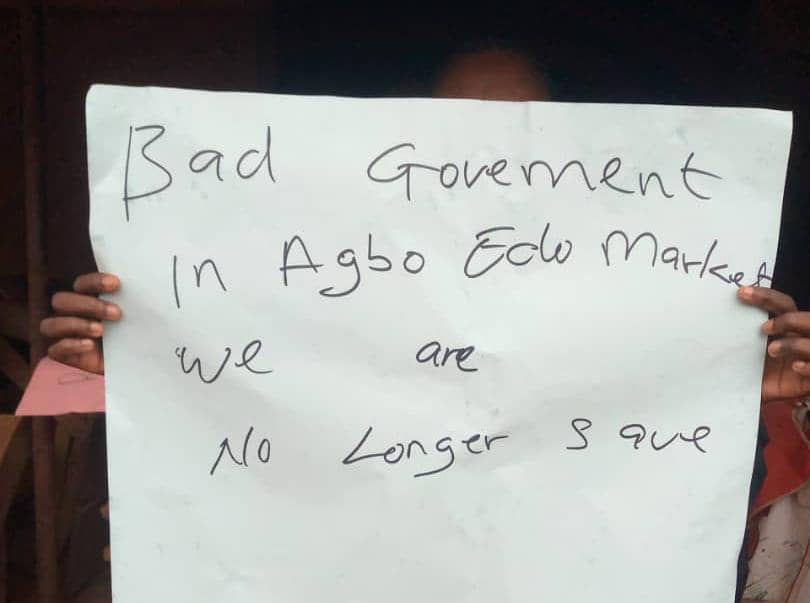 Bad Goverment
In Agbo Edo Market
we are
No Longer save